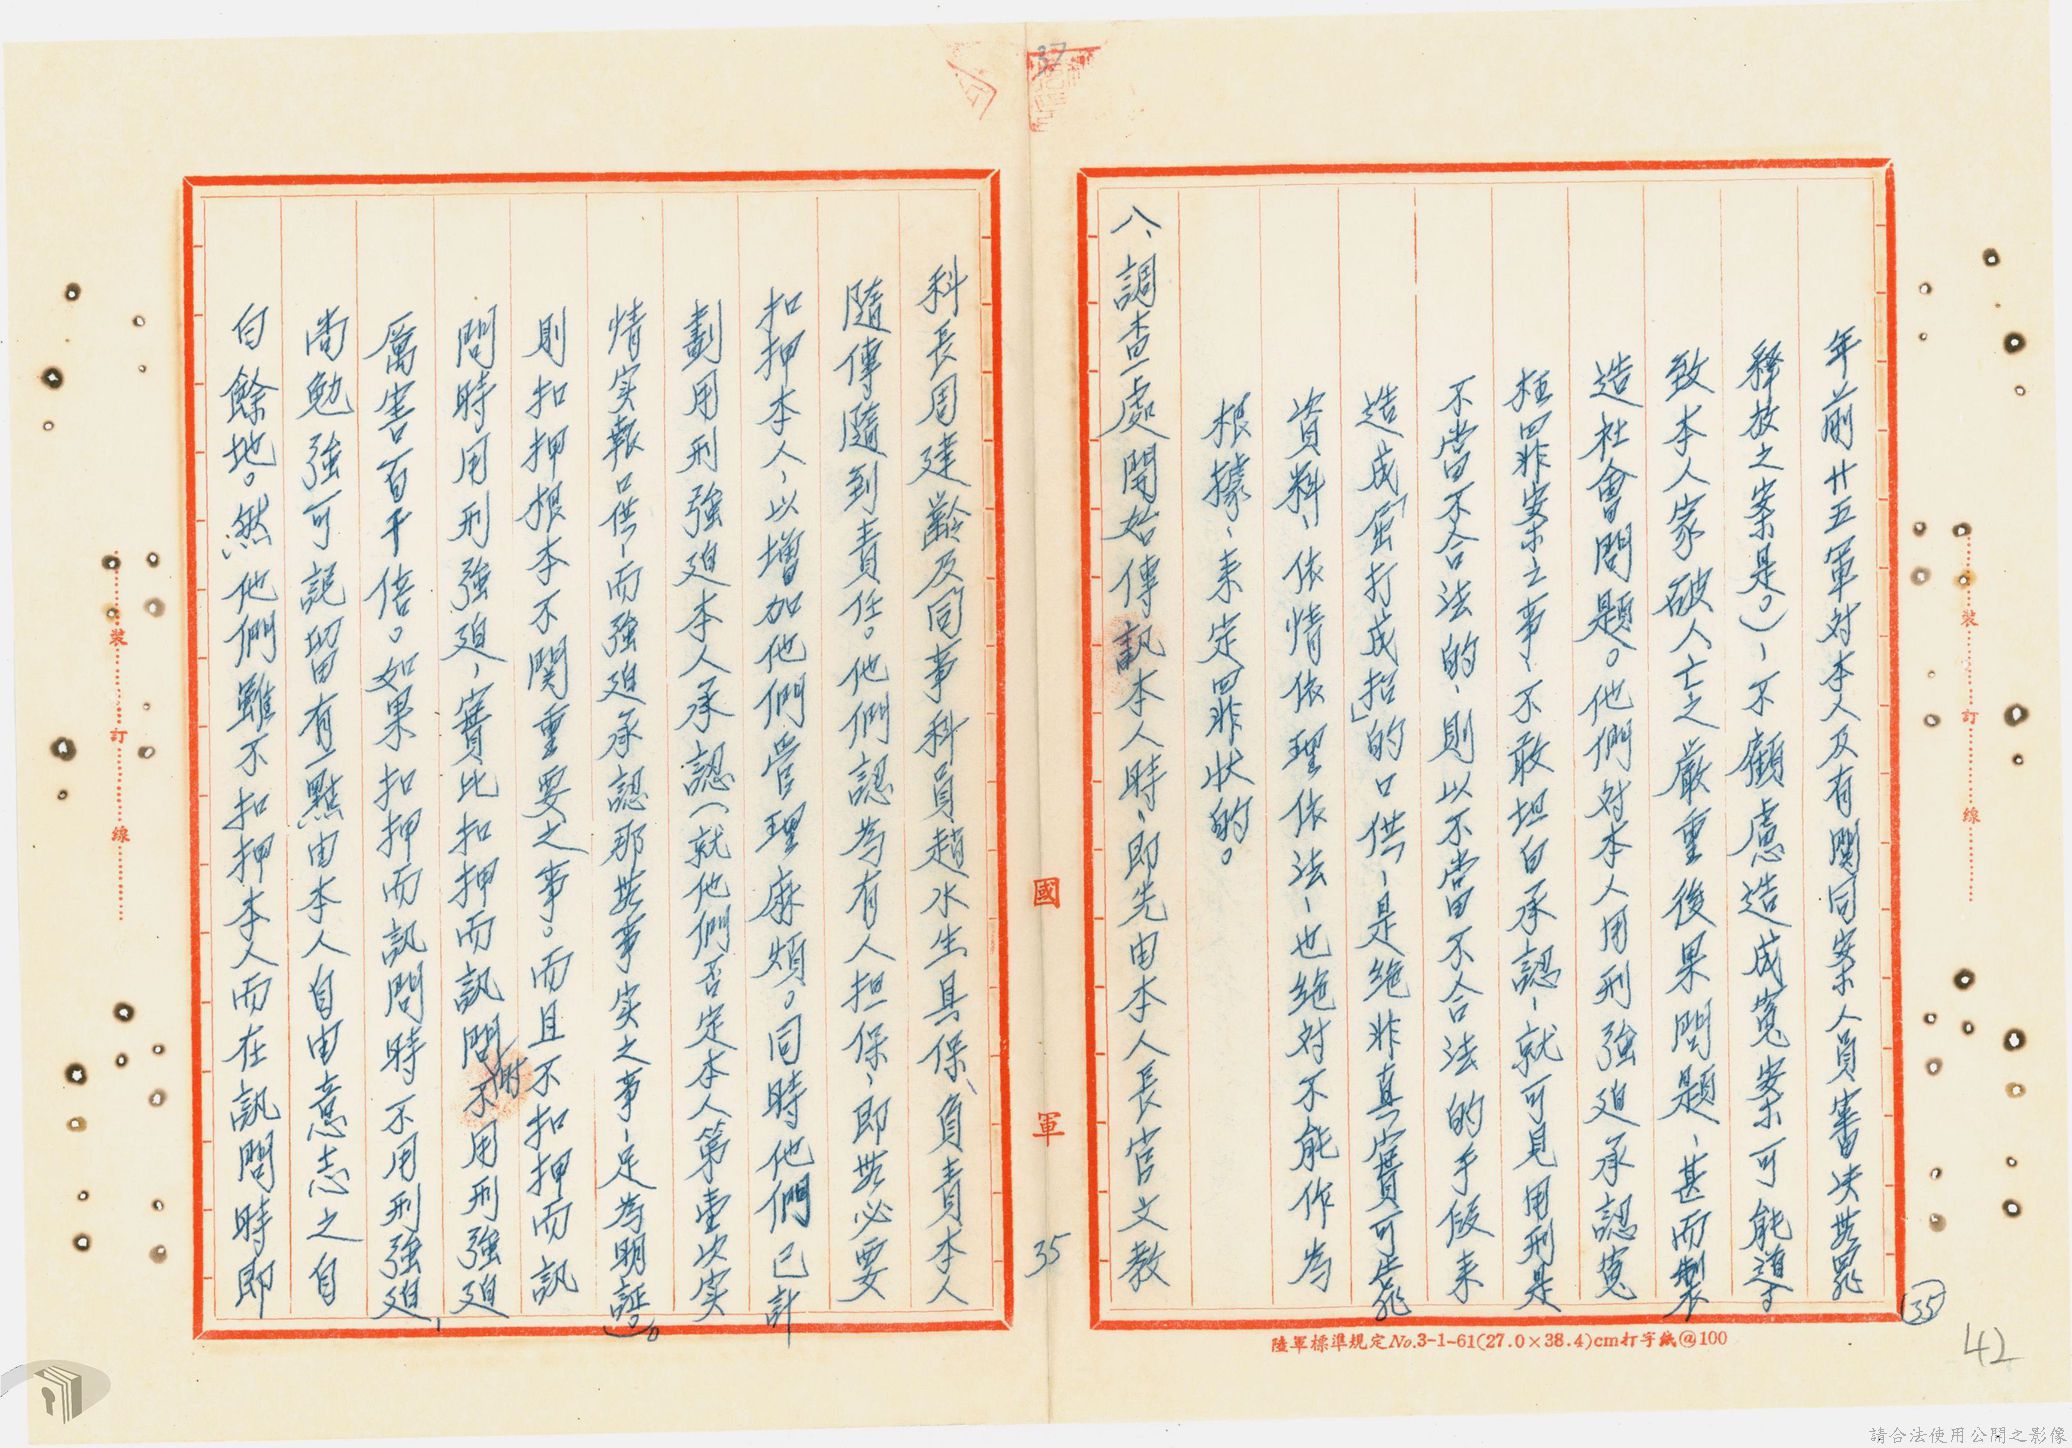 年前廿五軍对本人及有関同案人員審决無罪
釋放之案是。)、不顧慮造成寃案可能導
致本人家破人亡之嚴重後果問題、甚而製
造社會問題。他們对本人用刑強迫承認寃
枉罪案之事、不敢坦白承認、就可見用刑是
不當不合法的、則以不當不合法的手段来
造成「屈打成招」的口供、是绝非真實可靠
資料、依情依理依法、也绝对不能作為
根據、来定罪状的。
八、調查處開始傳訊本人時、即先由本人長官文教
科長周建齡及同事科員趙水生具保、負責本人
隨傳隨到責任。他們認為有人担保、即無必要
扣押本人、以增加他們管理麻煩。同時他們已計
劃用刑強迫本人承認(就他們否定本人第壹次実
情実報口供、而強迫承認那無事実之事、足為明証。)。
則扣押根本不関重要之事。而且不扣押而訊
問時用刑強迫、實比扣押而訊問時不用刑強迫
厲害百千倍。如果扣押而訊問時不用刑強迫、
尚勉強可說留有一點由本人自由意志之自
白餘地。然他們雖不扣押本人而在訊問時即
國軍 35
37
35
42
裝訂線
裝訂線
陸軍標準規定No.3-1-61(27.0×38.4)cm打字紙@100
請合法使用公開之影像